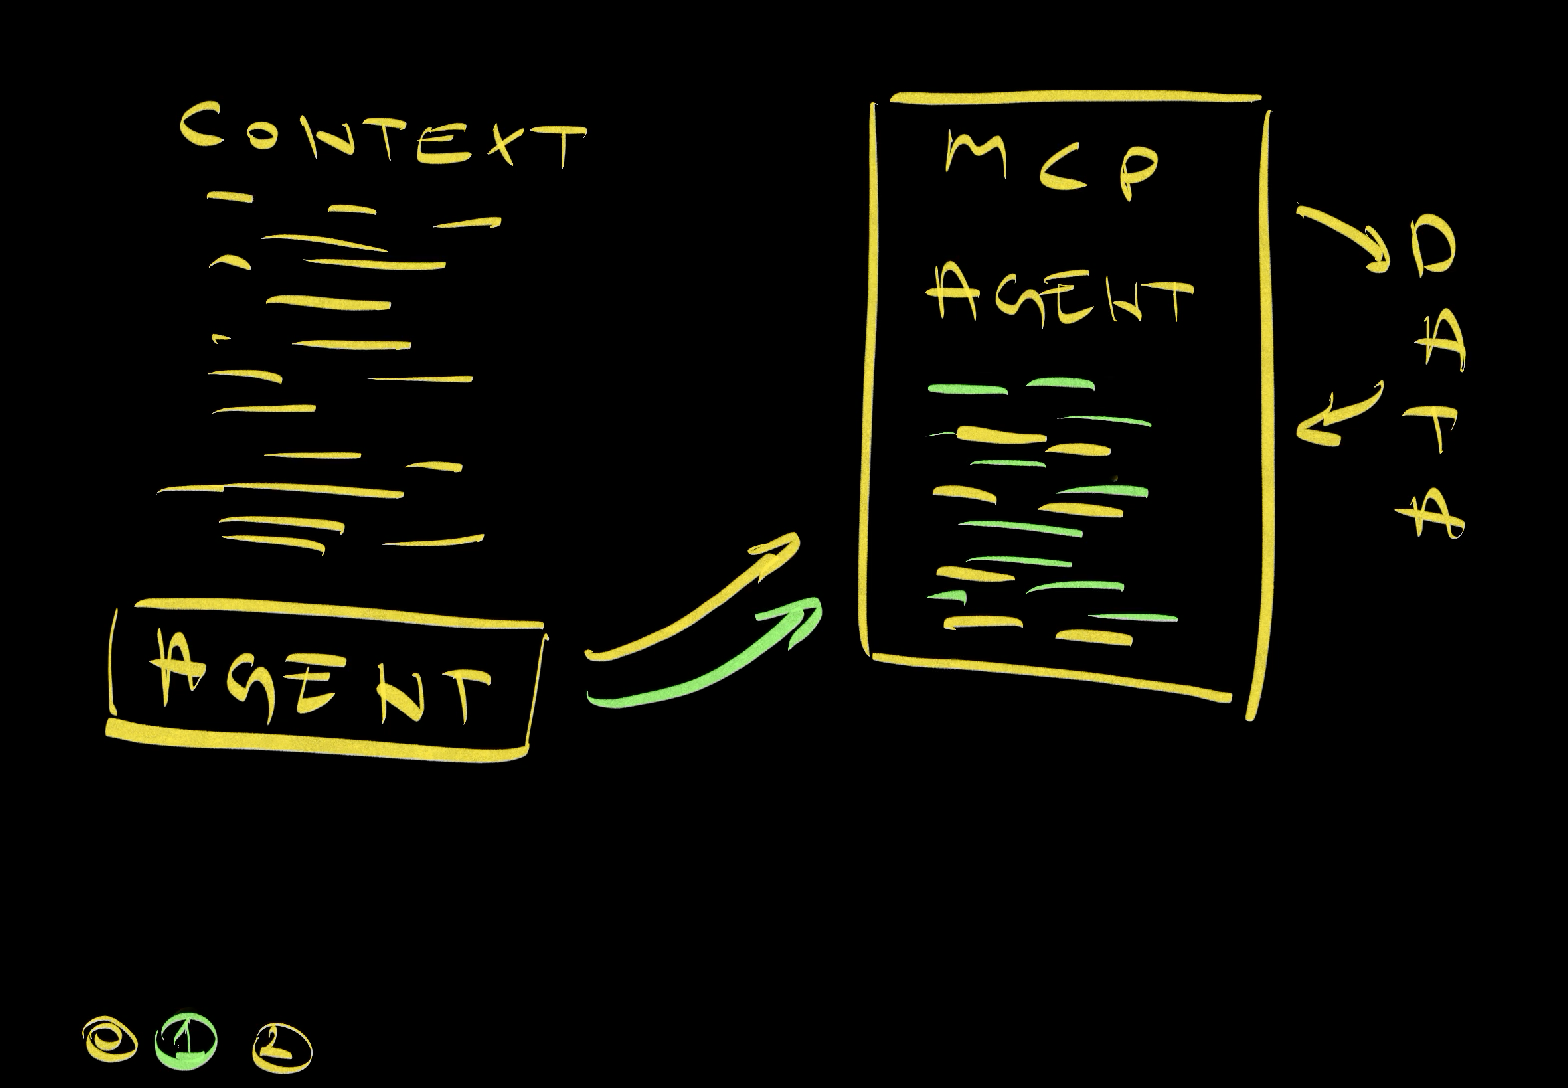 CONTEXT
AGENT
MCP
AGENT
DATA
0 1 2